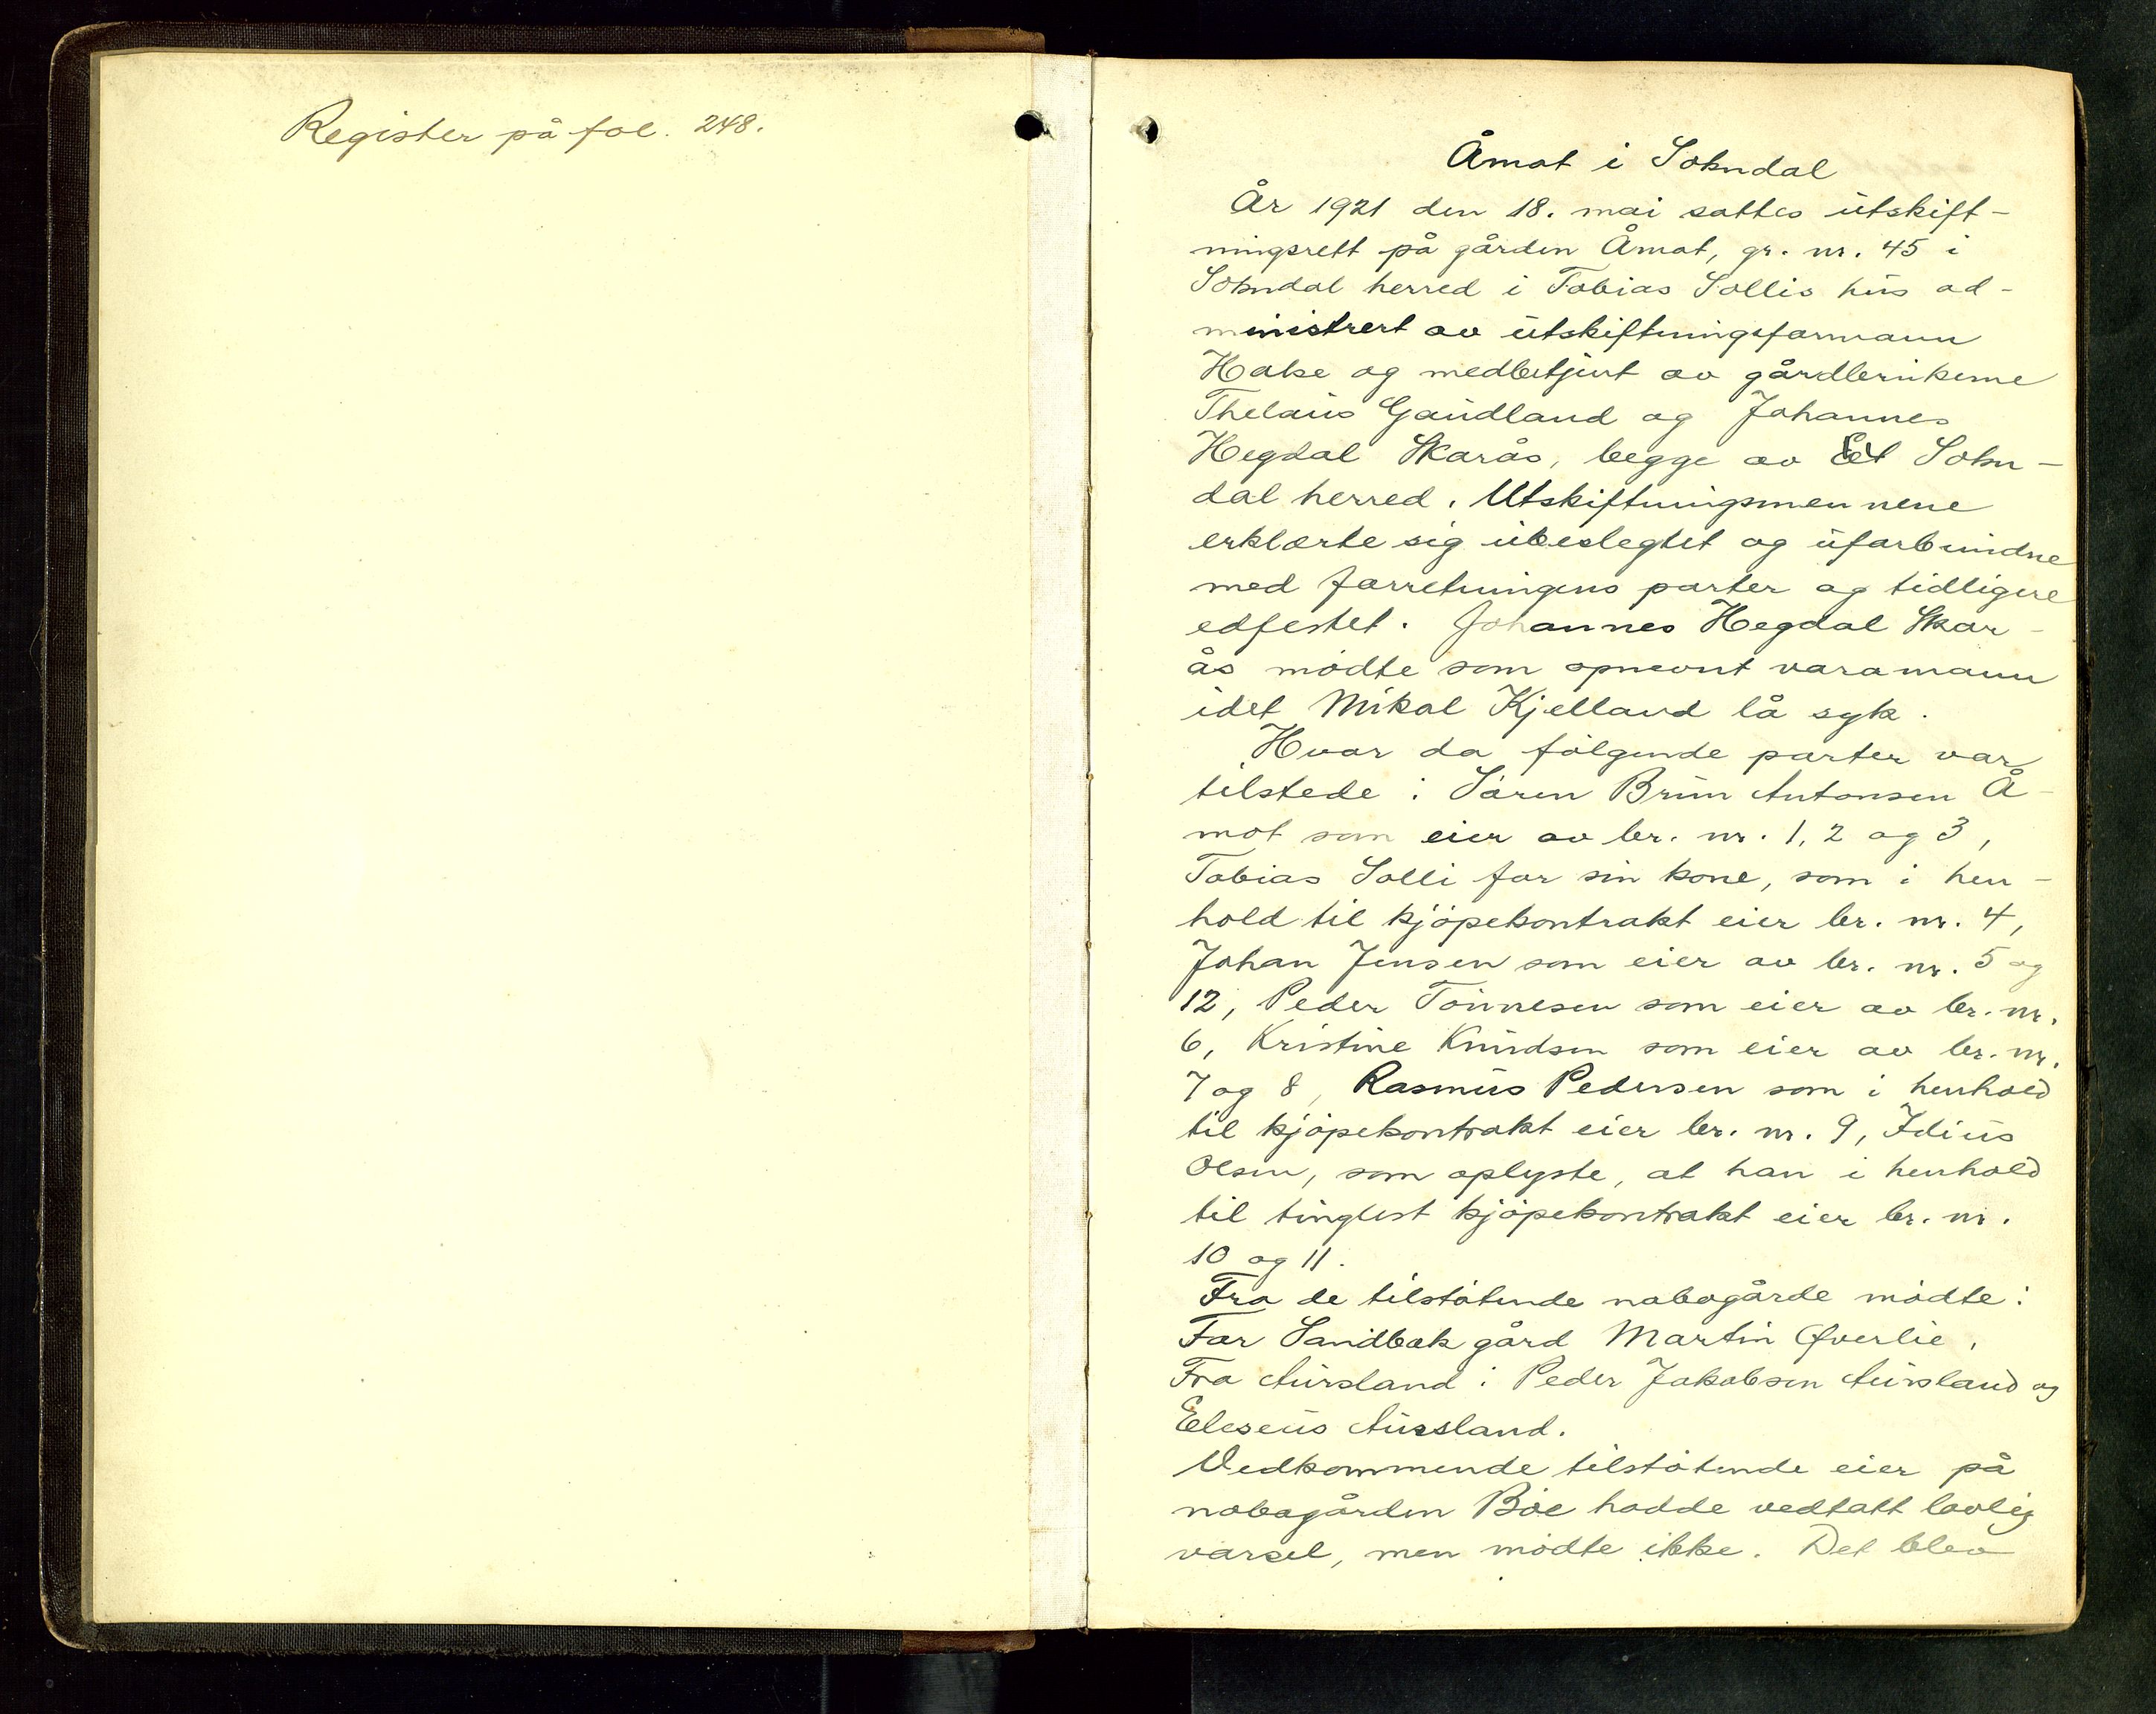 Register på fol. 248.
Åmot i Sokndal
År 1921 den 18. mai sattes utskift-
ningsrett på gården Åmot, gr. nr. 45 i
Sokndal herred i Tobias Sollis hus ad-
ministrert av utskiftningsformann
Hake og medbetjent av gårdbrukerne
Thelaus Gaudland og Johannes
Hegdal Skarås, begge av Sokn-
dal herred. Utskiftningsmennene
erklærte sig ubeslegtet og uforbundne
med forretningens parter og tidligere
edfestet. Johannes Hegdal Skar-
ås mødte som opnevnt varamann
idet Mikal Kjelland lå syk.
Hvor da følgende parter var
tilstede: Søren Brun Antonsen Å-
mot som eier av br. nr. 1, 2 og 3,
Tobias Solli for sin kone, som i hen-
hold til kjøpekontrakt eier br. nr. 4,
Johan Jensen som eier av br. nr. 5 og
12, Peder Tønnesen som eier av br. nr.
6, Kristine Knudsen som eier av br. nr.
7 og 8, Rasmus Pedersen som i henhold
til kjøpekontrakt eier br. nr. 9, Idius
Olsen, som oplyste, at han i henhold
til tinglest kjøpekontrakt eier br. nr.
10 og 11.
Fra de tilstøtende nabogårde mødte:
For Sandbæk gård Martin Øverlie,
Fra Aursland: Peder Jakobsen Aursland og
Eleseus Aursland.
Vedkommende tilstøtende eier på
nabogården Bøe hadde vedtatt lovlig
varsel, men mødte ikke. Det blev